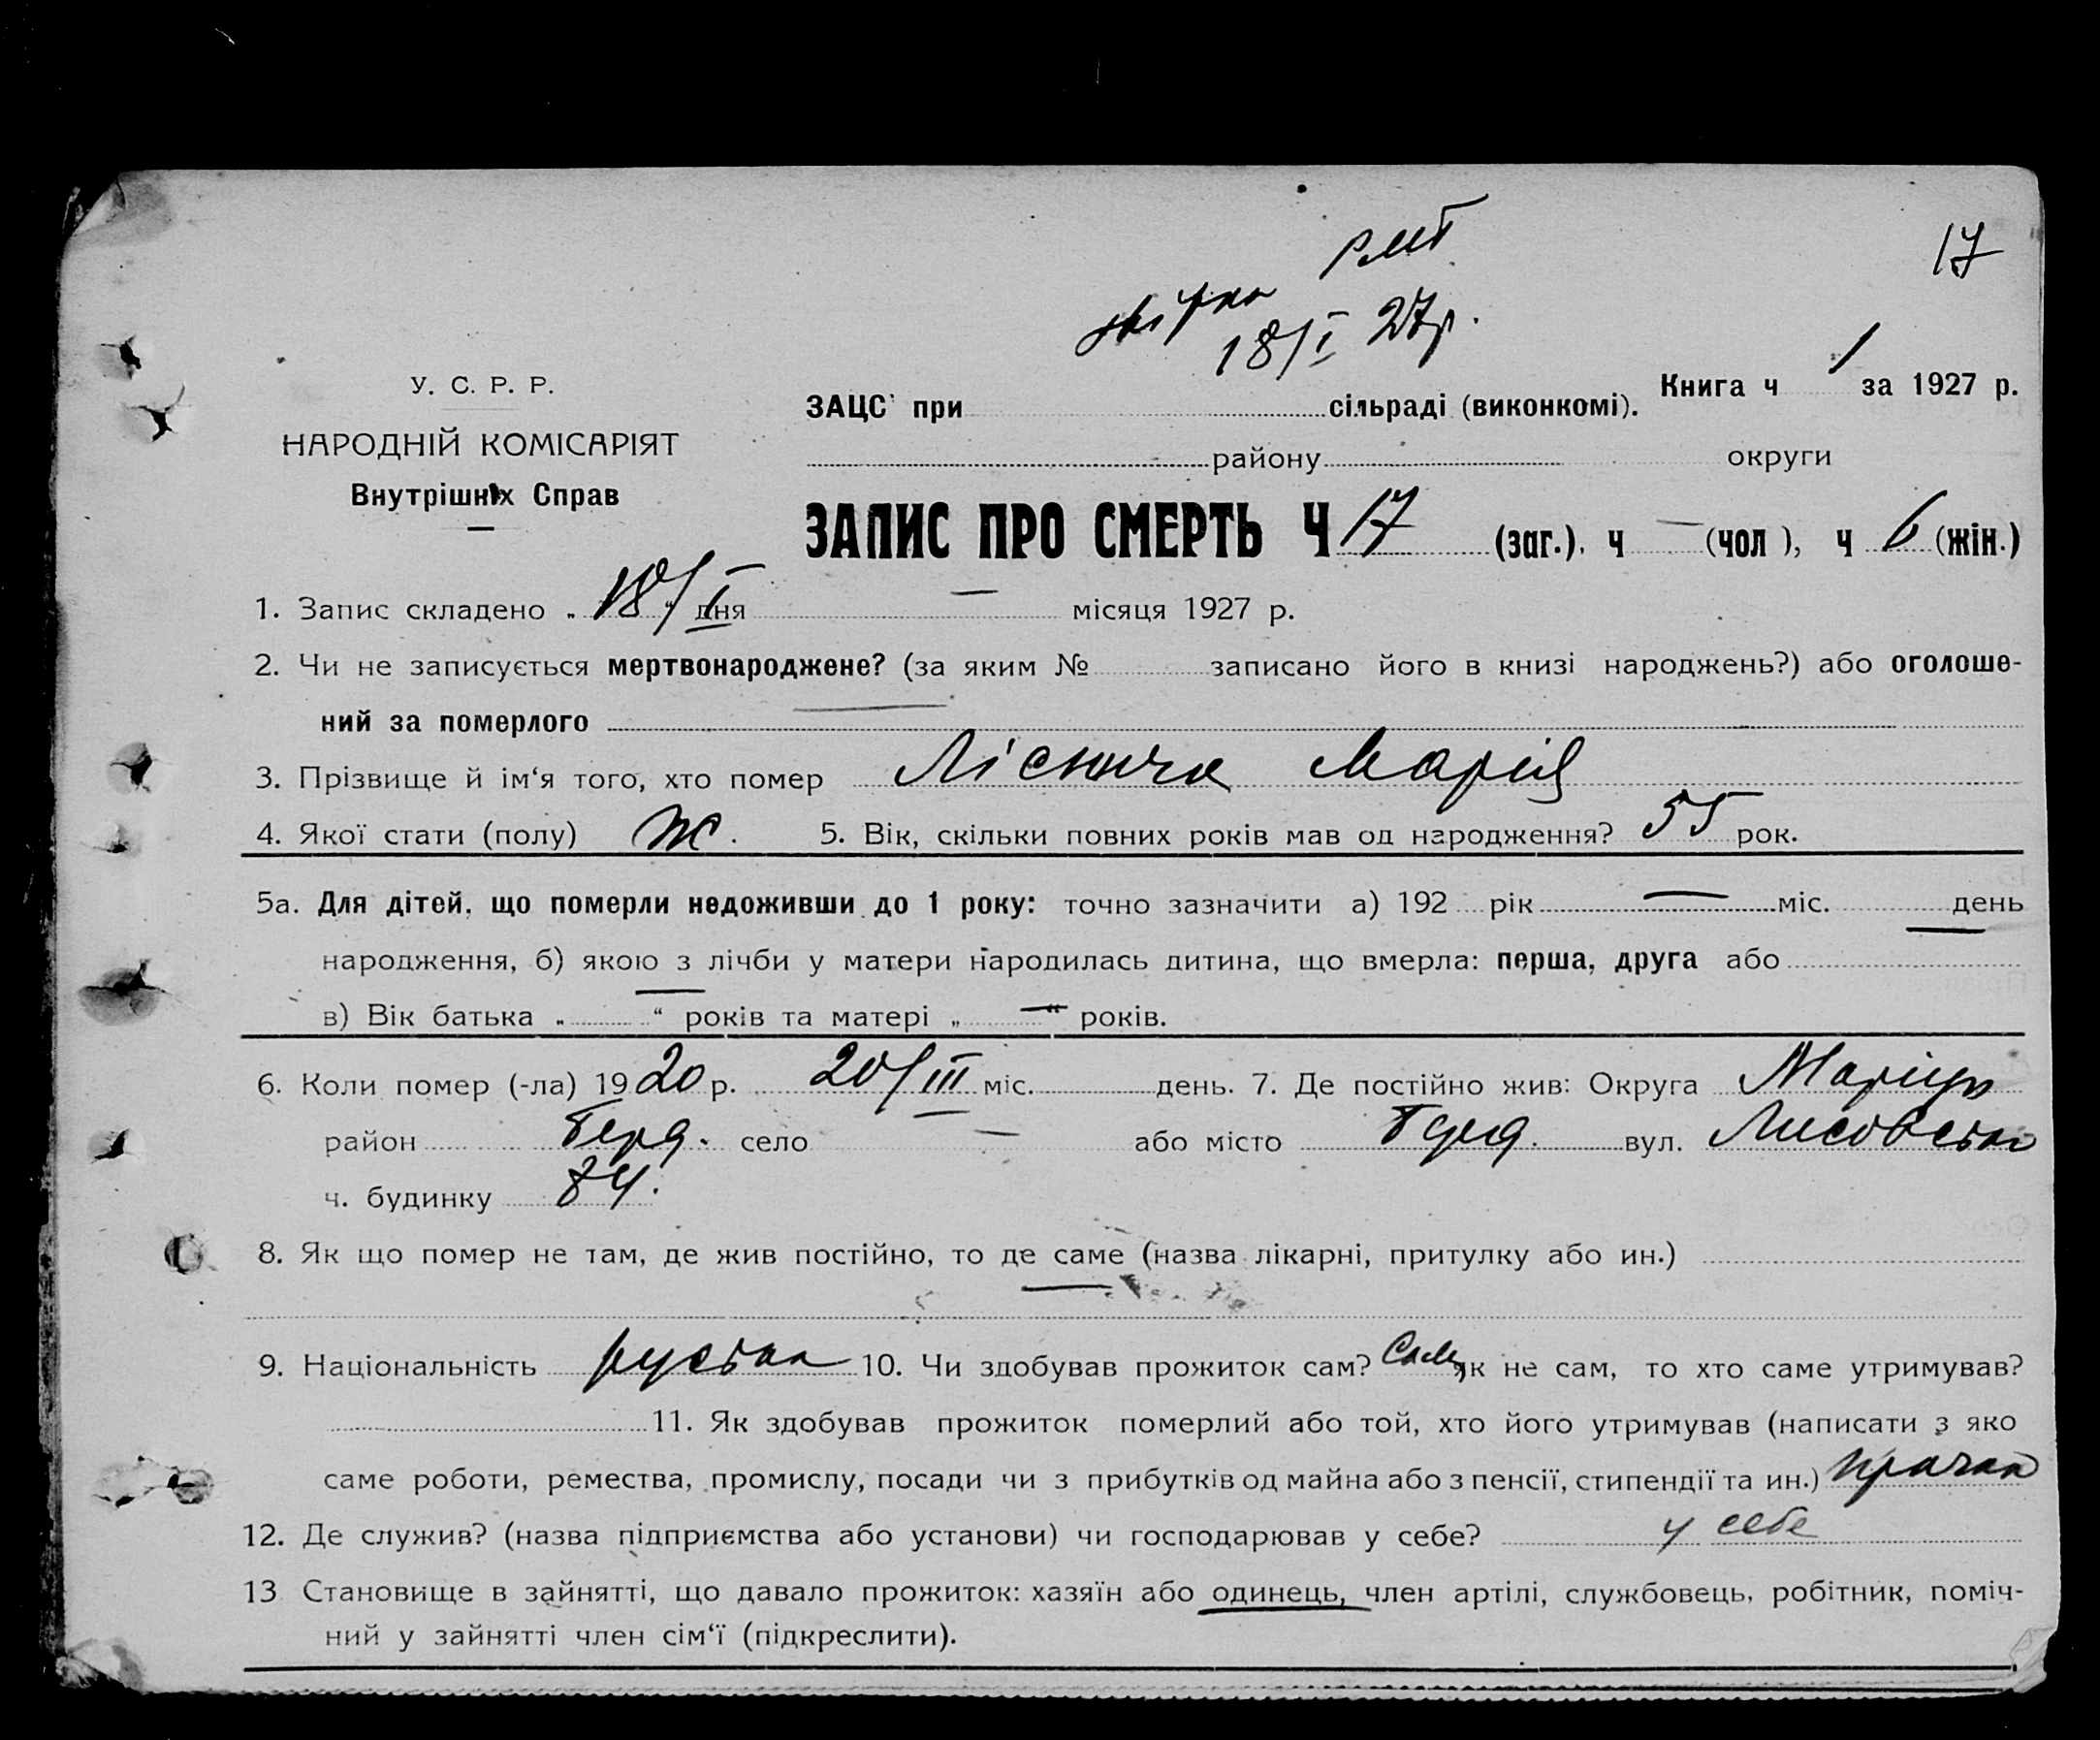 17
18/I 27р.
У. С. Р. Р.
НАРОДНІЙ КОМІСАРІЯТ
Внутрішніх Справ
Книга ч 1 за 1927 р.
ЗАЦС при сільраді (виконкомі).
району округи
ЗАПИС ПРО СМЕРТЬ Ч 17 (заг.). ч — (чол ), ч 6 (жін.)
1. Запис складено „ 18/I “ дня — місяця 1927 р.
2. Чи не записується мертвонароджене? (за яким № записано його в книзі народжень?) або оголоше-
ний за померлого —
3. Прізвище й ім‘я того, хто помер Ліснича Марія
4. Якої стати (полу) Ж. 5. Вік, скільки повних років мав од народження? 55 рок.
5а. Для дітей, що померли недоживши до 1 року: точно зазначити а) 192 рік — міс. — день
народження, б) якою з лічби у матери народилась дитина, що вмерла: перша, друга або
в) Вік батька „ — “ років та матері „ — “ років.
6. Коли помер (-ла) 1920 р. 20/III міс. день. 7. Де постійно жив: Округа Маріуп
район Берд. село — або місто Берд. вул. Лисовська
ч. будинку 84.
8. Як що помер не там, де жив постійно, то де саме (назва лікарні, притулку або ин.)
—
9. Національність руська 10. Чи здобував прожиток сам? Сам, як не сам, то хто саме утримував?
11. Як здобував прожиток померлий або той, хто його утримував (написати з яко
саме роботи, ремества, промислу, посади чи з прибутків од майна або з пенсії, стипендії та ин.) прачка
12. Де служив? (назва підприємства або установи) чи господарював у себе? у себе
13 Становище в зайнятті, що давало прожиток: хазяїн або одинець, член артілі, службовець, робітник, поміч-
ний у зайнятті член сім‘ї (підкреслити).